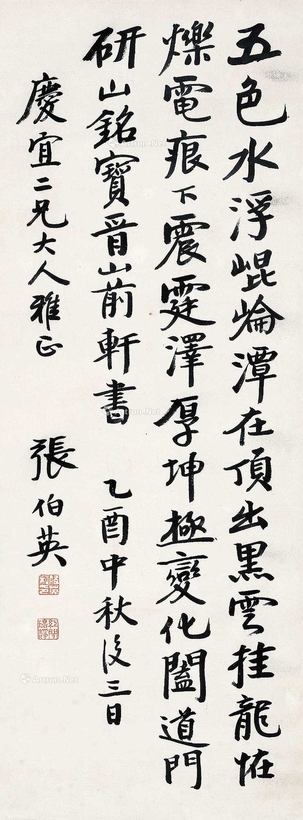 五色水浮崐崘潭在頂出黑雲挂龍恠
爍電痕下震霆澤厚坤極變化闔道門
研山銘寶晋山前軒書 乙酉中秋後三日
慶宜二兄大人雅正 張伯英